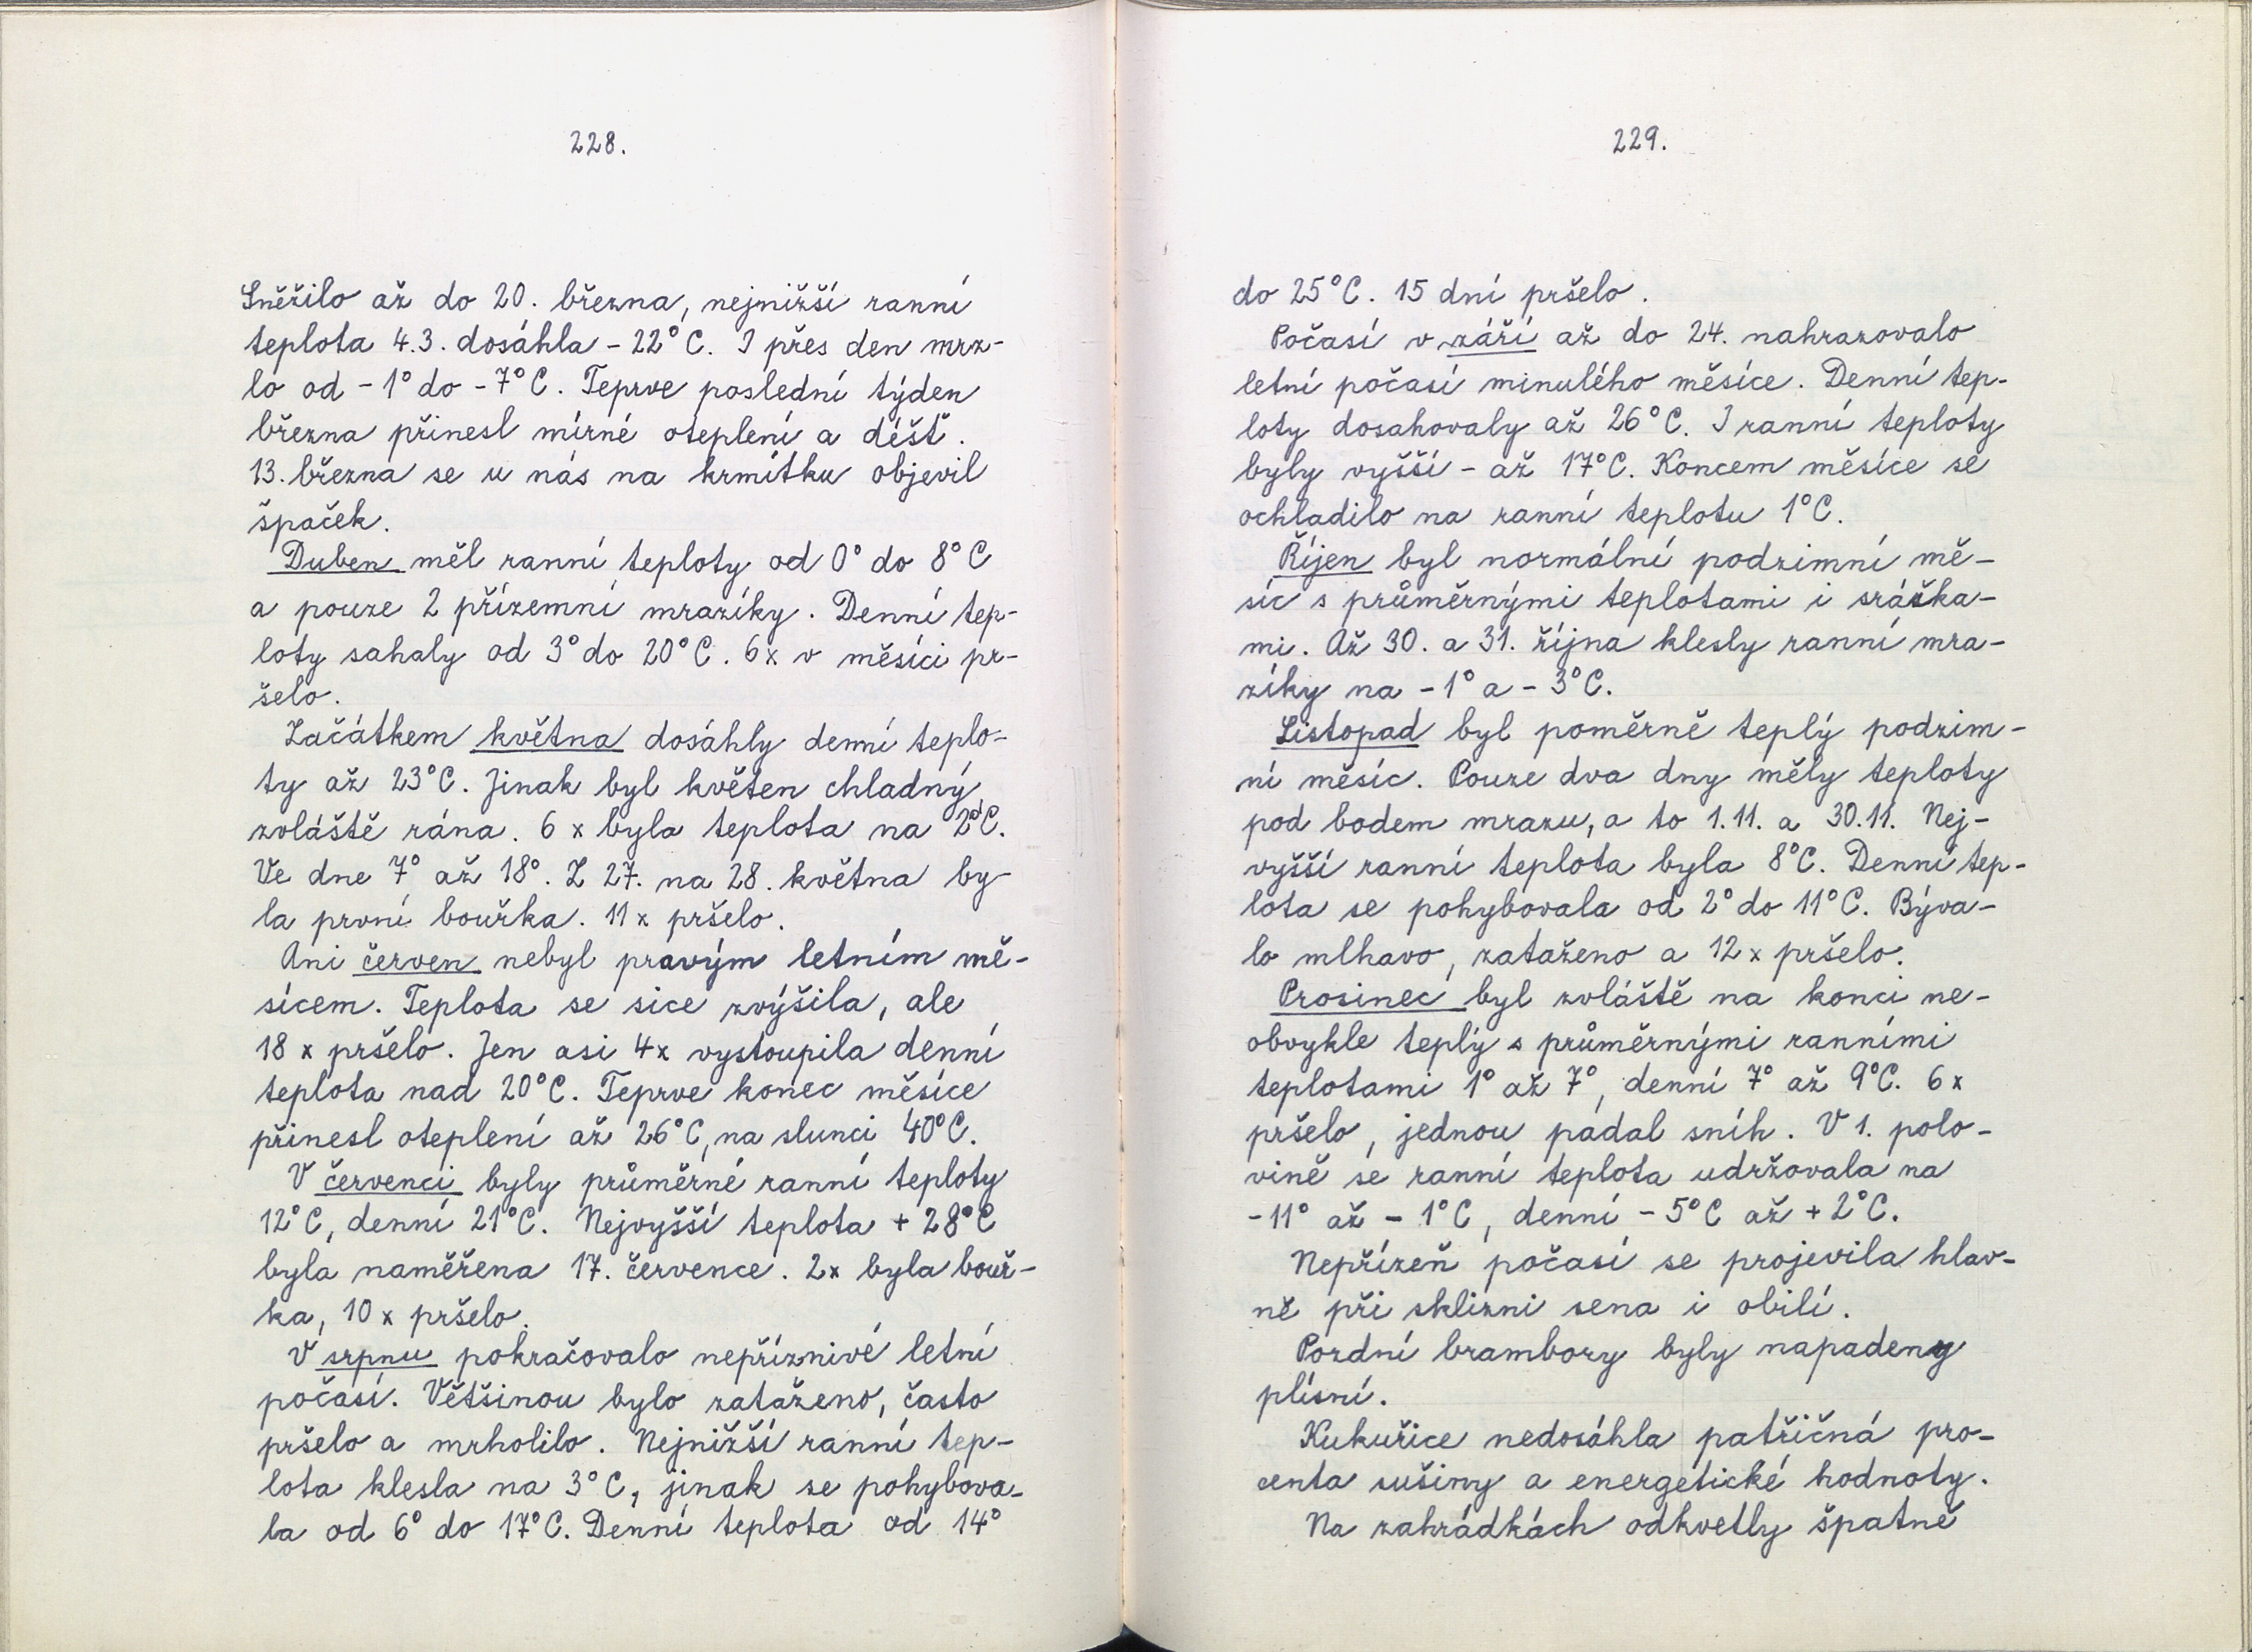 228.
Sněžilo až do 20. března, nejnižší ranní
teplota 4.3. dosáhla - 22°C. I přes den mrz-
lo od - 1° do - 7°C. Teprve poslední týden
března přinesl mírné oteplení a déšť.
13. března se u nás na krmítku objevil
špaček.
Duben měl ranní teploty od 0° do 8°C
a pouze 2 přízemní mrazíky. Denní tep-
loty sahaly od 3° do 20°C. 6x v měsíci pr-
šelo.
Začátkem května dosáhly denní teplo-
ty až 23°C. Jinak byl květen chladný
zvláště rána. 6 x byla teplota na 2°C.
Ve dne 7° až 18°. Z 27. na 28. května by-
la první bouřka. 11 x pršelo.
Ani červen nebyl pravým letním mě-
sícem. Teplota se sice zvýšila, ale
18 x pršelo. Jen asi 4x vystoupila denní
teplota nad 20°C. Teprve konec měsíce
přinesl oteplení až 26°C, na slunci 40°C.
V červenci byly průměrné ranní teploty
12°C, denní 21°C. Nejvyšší teplota + 28°C
byla naměřena 17. července. 2x byla bouř-
ka, 10 x pršelo.
V srpnu pokračovalo nepříznivé letní
počasí. Většinou bylo zataženo, často
pršelo a mrholilo. Nejnižší ranní tep-
lota klesla na 3°C, jinak se pohybova-
la od 6° do 17°C. Denní teplota od 14°
229.
do 25°C. 15 dní pršelo.
Počasí v září až do 24. nahrazovalo
letní počasí minulého měsíce. Denní tep-
loty dosahovaly až 26°C. I ranní teploty
byly vyšší - až 17°C. Koncem měsíce se
ochladilo na ranní teplotu 1°C.
Říjen byl normální podzimní mě-
síc s průměrnými teplotami i srážka-
mi. Až 30. a 31. října klesly ranní mra-
zíky na - 1° a - 3°C.
Listopad byl poměrně teplý podzim-
ní měsíc. Pouze dva dny měly teploty
pod bodem mrazu, a to 1.11. a 30.11. Nej-
vyšší ranní teplota byla 8°C. Denní tep-
lota se pohybovala od 2° do 11°C. Býva-
lo mlhavo, zataženo a 12 x pršelo.
Prosinec byl zvláště na konci ne-
obvykle teplý s průměrnými ranními
teplotami 1° až 7°, denní 7° až 9°C. 6 x
pršelo, jednou padal sníh. V 1. polo-
vině se ranní teplota udržovala na
- 11° až - 1°C, denní - 5°C až + 2°C.
Nepřízeň počasí se projevila hlav-
ně při sklizni sena i obilí.
Pozdní brambory byly napadeny
plísní.
Kukuřice nedosáhla patřičná pro-
centa sušiny a energetické hodnoty.
Na zahrádkách odkvetly špatně